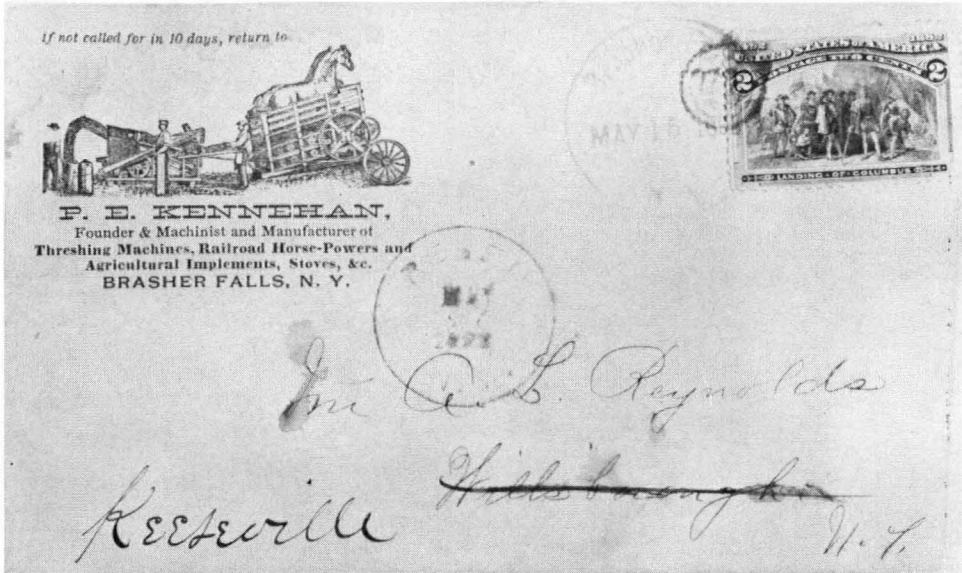 If not called for in 10 days, return to
P. E. KENNEHAN,
Founder & Machinist and Manufacturer of
Threshing Machines, Railroad Horse-Powers and
Agricultural Implements, Stoves, &c.
BRASHER FALLS, N. Y.
MAY 16
1492 1892
UNITED STATES OF AMERICA
POSTAGE TWO CENTS
2 2
LANDING OF COLUMBUS
MAY
A. L. Reynolds
Willsborough
N. Y.
Keeseville